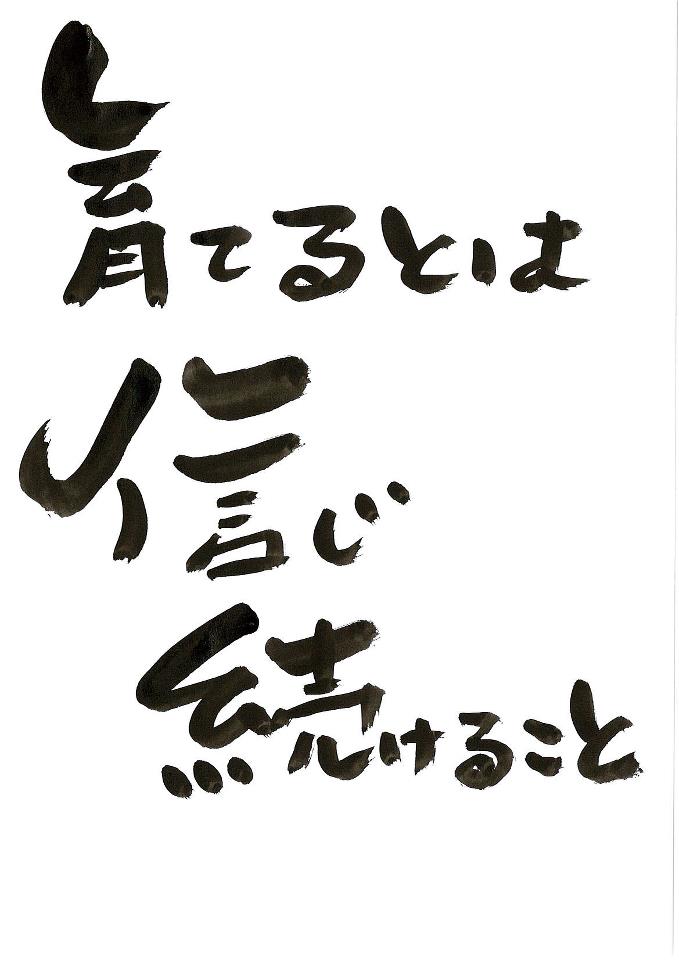 育てるとは
信じ
続けること